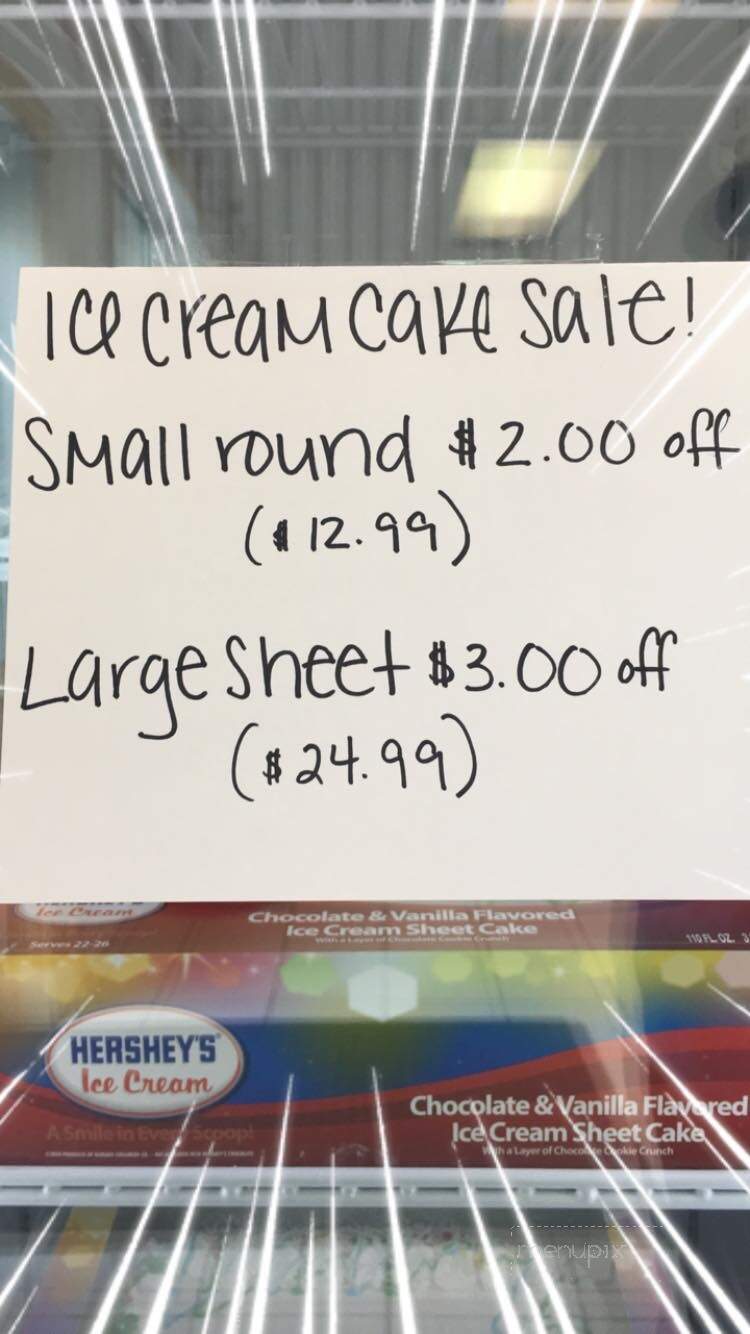 Ice cream cake sale!
Small round $2.00 off
($12.99)
Large Sheet $3.00 off
($24.99)
Ice Cream
Serves 22-26
Chocolate & Vanilla Flavored
Ice Cream Sheet Cake
With a Layer of Chocolate Cookie Crunch
110 FL OZ
HERSHEY'S
Ice Cream
A Smile in Every Scoop!
Chocolate & Vanilla Flavored
Ice Cream Sheet Cake
With a Layer of Chocolate Cookie Crunch
menupix